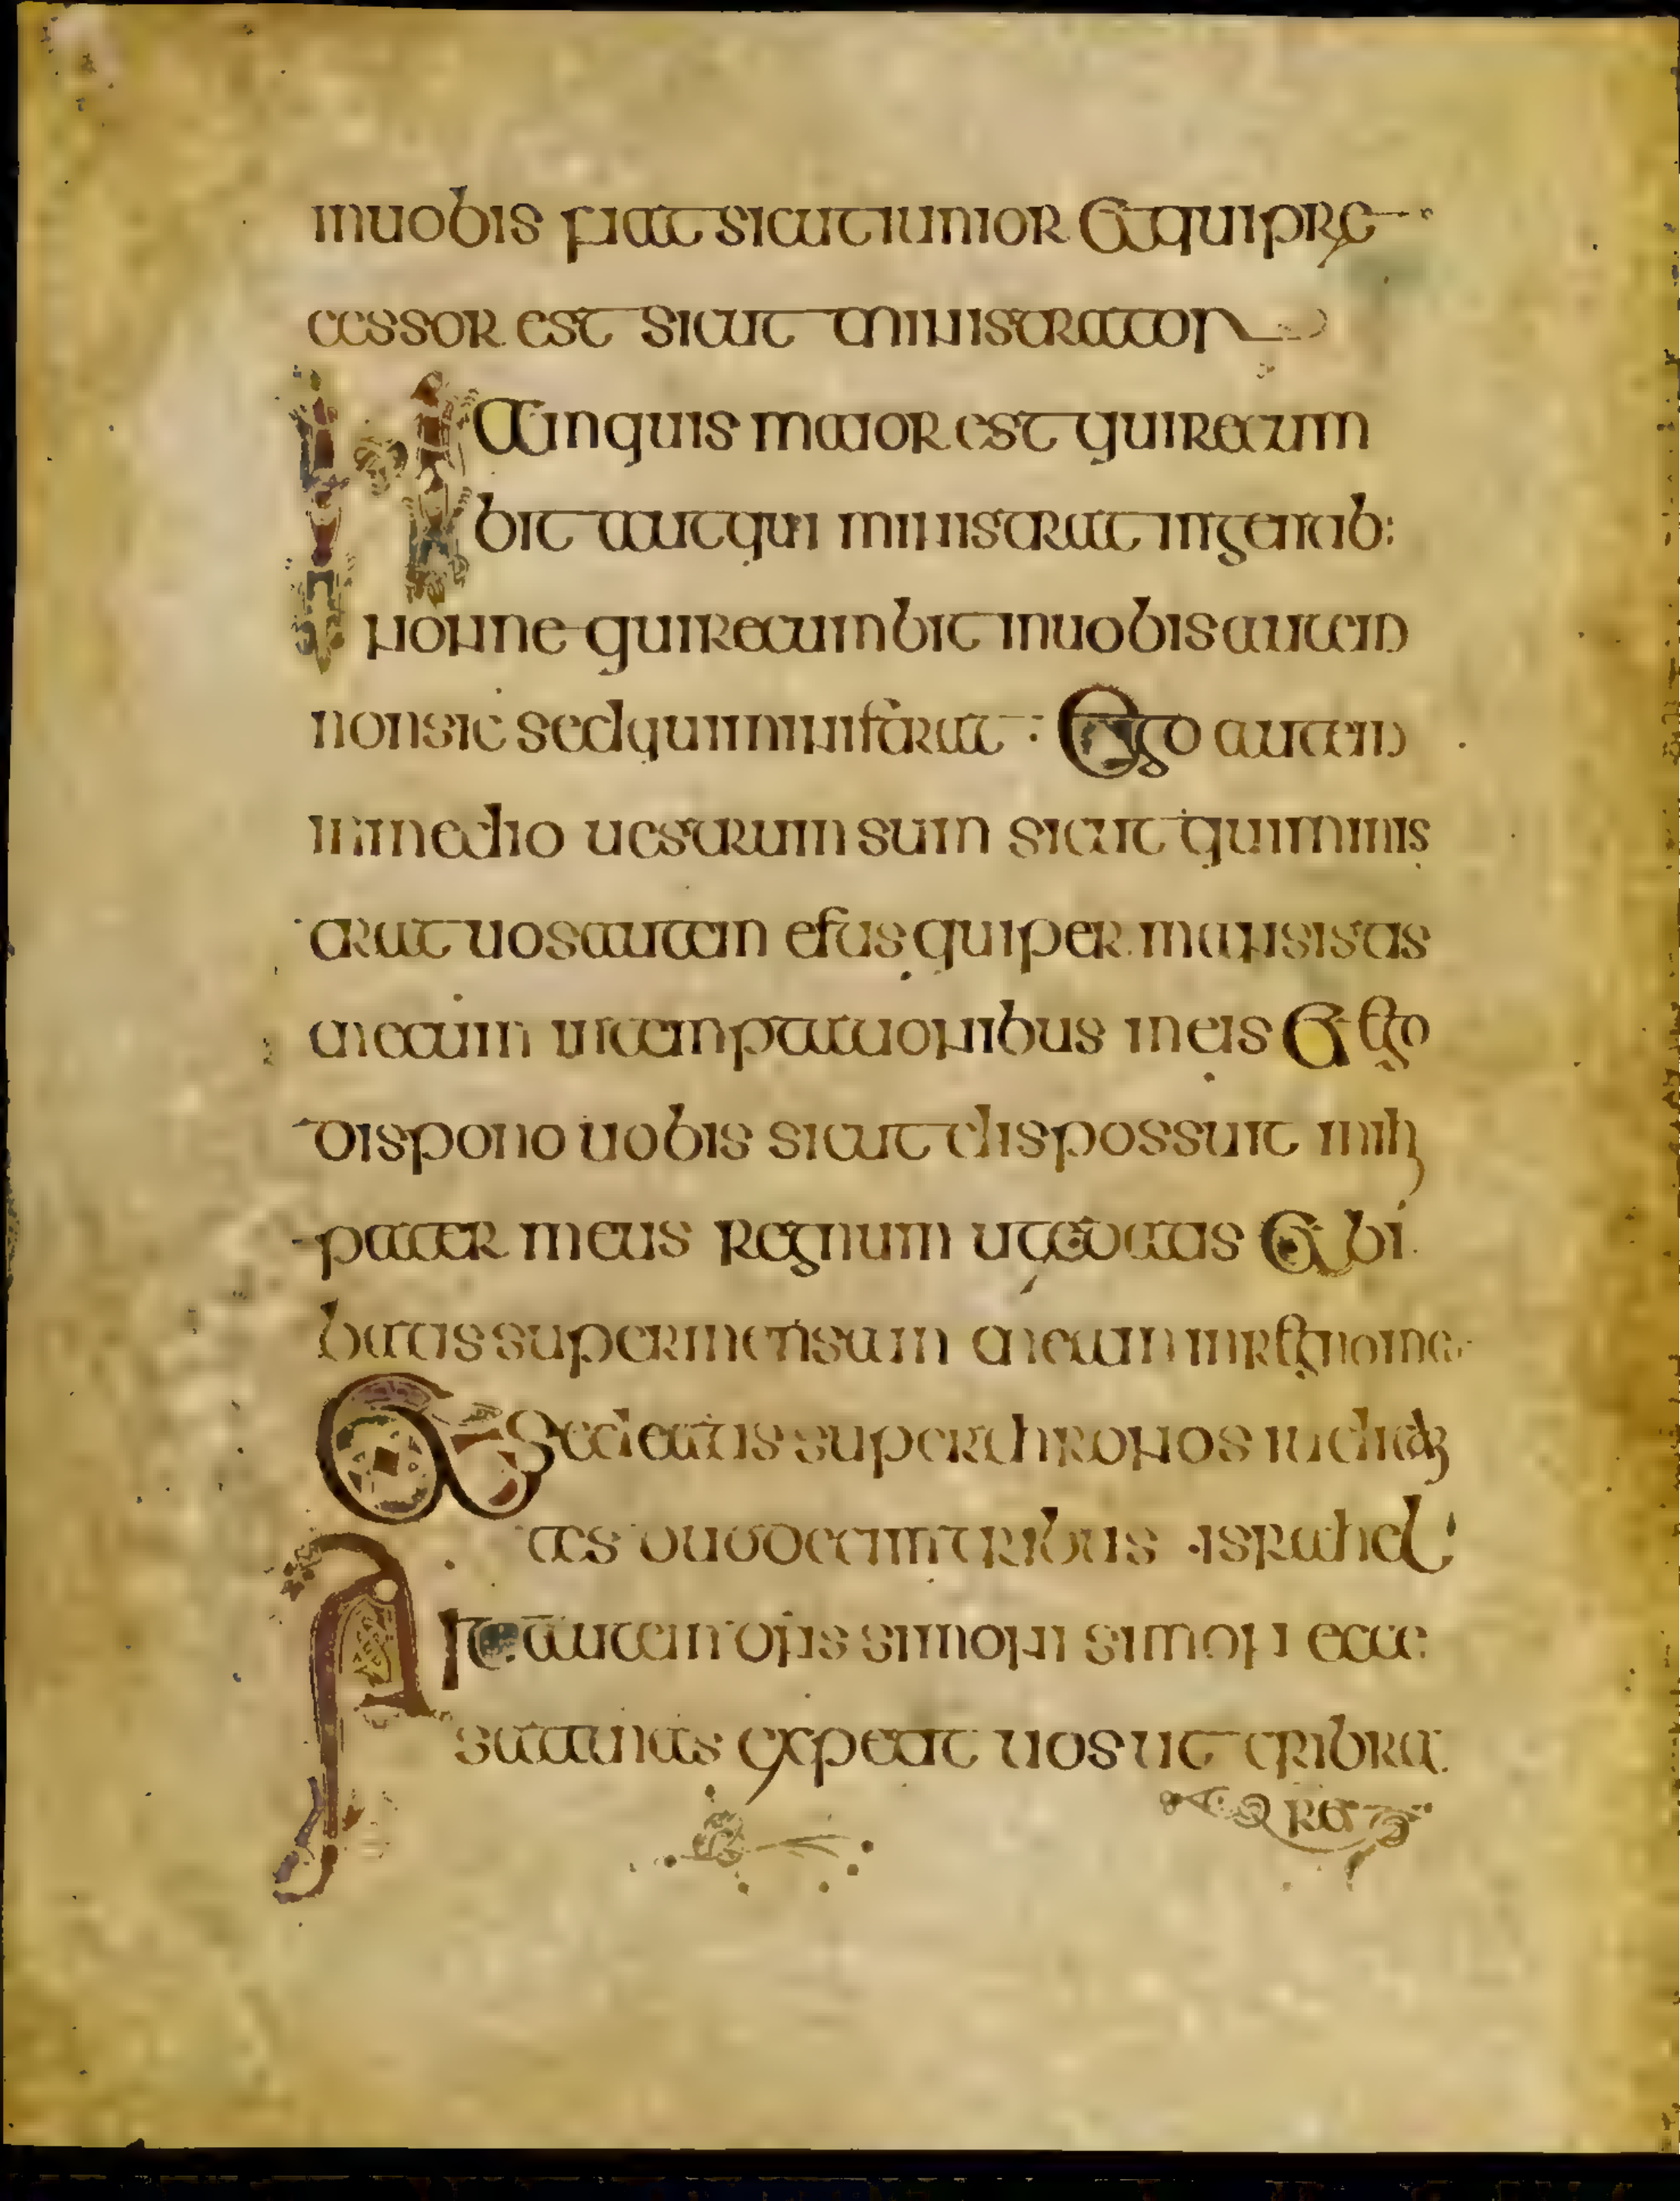 inuobis fiat sicut iunior et qui prę
cessor est sicut ministrator
Nam quis maior est qui recum
bit aut qui ministrat in gentib:
nonne qui recumbit in uobis autem
non sic sed qui ministrat Ego autem
in medio uestrum sum sicut qui minis
trat uos autem estis qui permansistis
mecum in temptationibus meis Et ego
dispono uobis sicut dispossuit mihi
pater meus regnum ut edatis et bi
batis super mensam meam in regno meo
Et sedeatis super thronos iudican
tes duodecim tribus israhel
Ait autem dns simoni simon ecce
satanas expetit uos ut cribra
ret